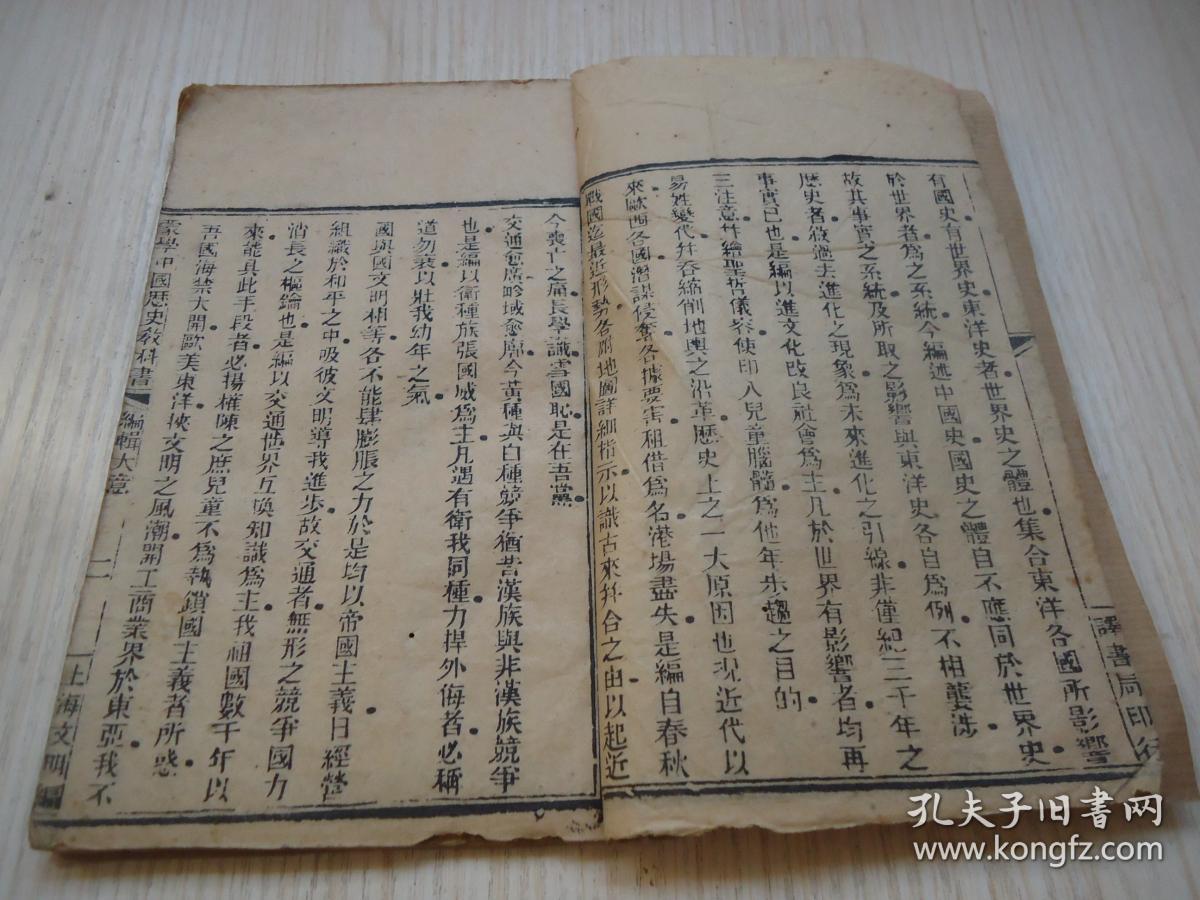 有國史有世界史東洋史者世界史之體也集合東洋各國所影響
於世界者爲之系統今編述中國史國史之體自不應同於世界史
故其事實之系統及所取之影響與東洋史各自爲例不相襲涉
歷史者敘過去進化之現象爲未來進化之引線非僅紀三千年之
事實已也是編以進文化改良社會爲主凡於世界有影響者均再
三注意幷繪聖哲儀容使印入兒童腦髓爲他年步趨之目的
易姓變代幷呑縮削地輿之沿革歷史上之一大原因也況近代以
來歐西各國潛謀侵奪各據要害租借爲名港場盡失是編自春秋
戰國迄最近形勢各附地圖詳細指示以識古來幷合之由以起近
譯書局印行
今喪亡之痛長學識雪國恥是在吾黨
交通愈廣畛域愈廓今黃種與白種競爭猶昔漢族與非漢族競爭
也是編以衛種族張國威爲主凡遇有衛我同種力捍外侮者必稱
道勿衰以壯我幼年之氣
國與國文明相等各不能肆膨脹之力於是均以帝國主義日經營
組識於和平之中吸彼文明導我進步故交通者無形之競爭國力
消長之樞鑰也是編以交通世界互換知識爲主我祖國數千年以
來能具此手段者必揚搉陳之庶兒童不爲執鎖國主義者所惑
吾國海禁大開歐美東洋挾文明之風潮開工商業界於東亞我不
蒙學中國歷史敎科書 編輯大意 二 上海文明編
孔夫子旧书网
www.kongfz.com